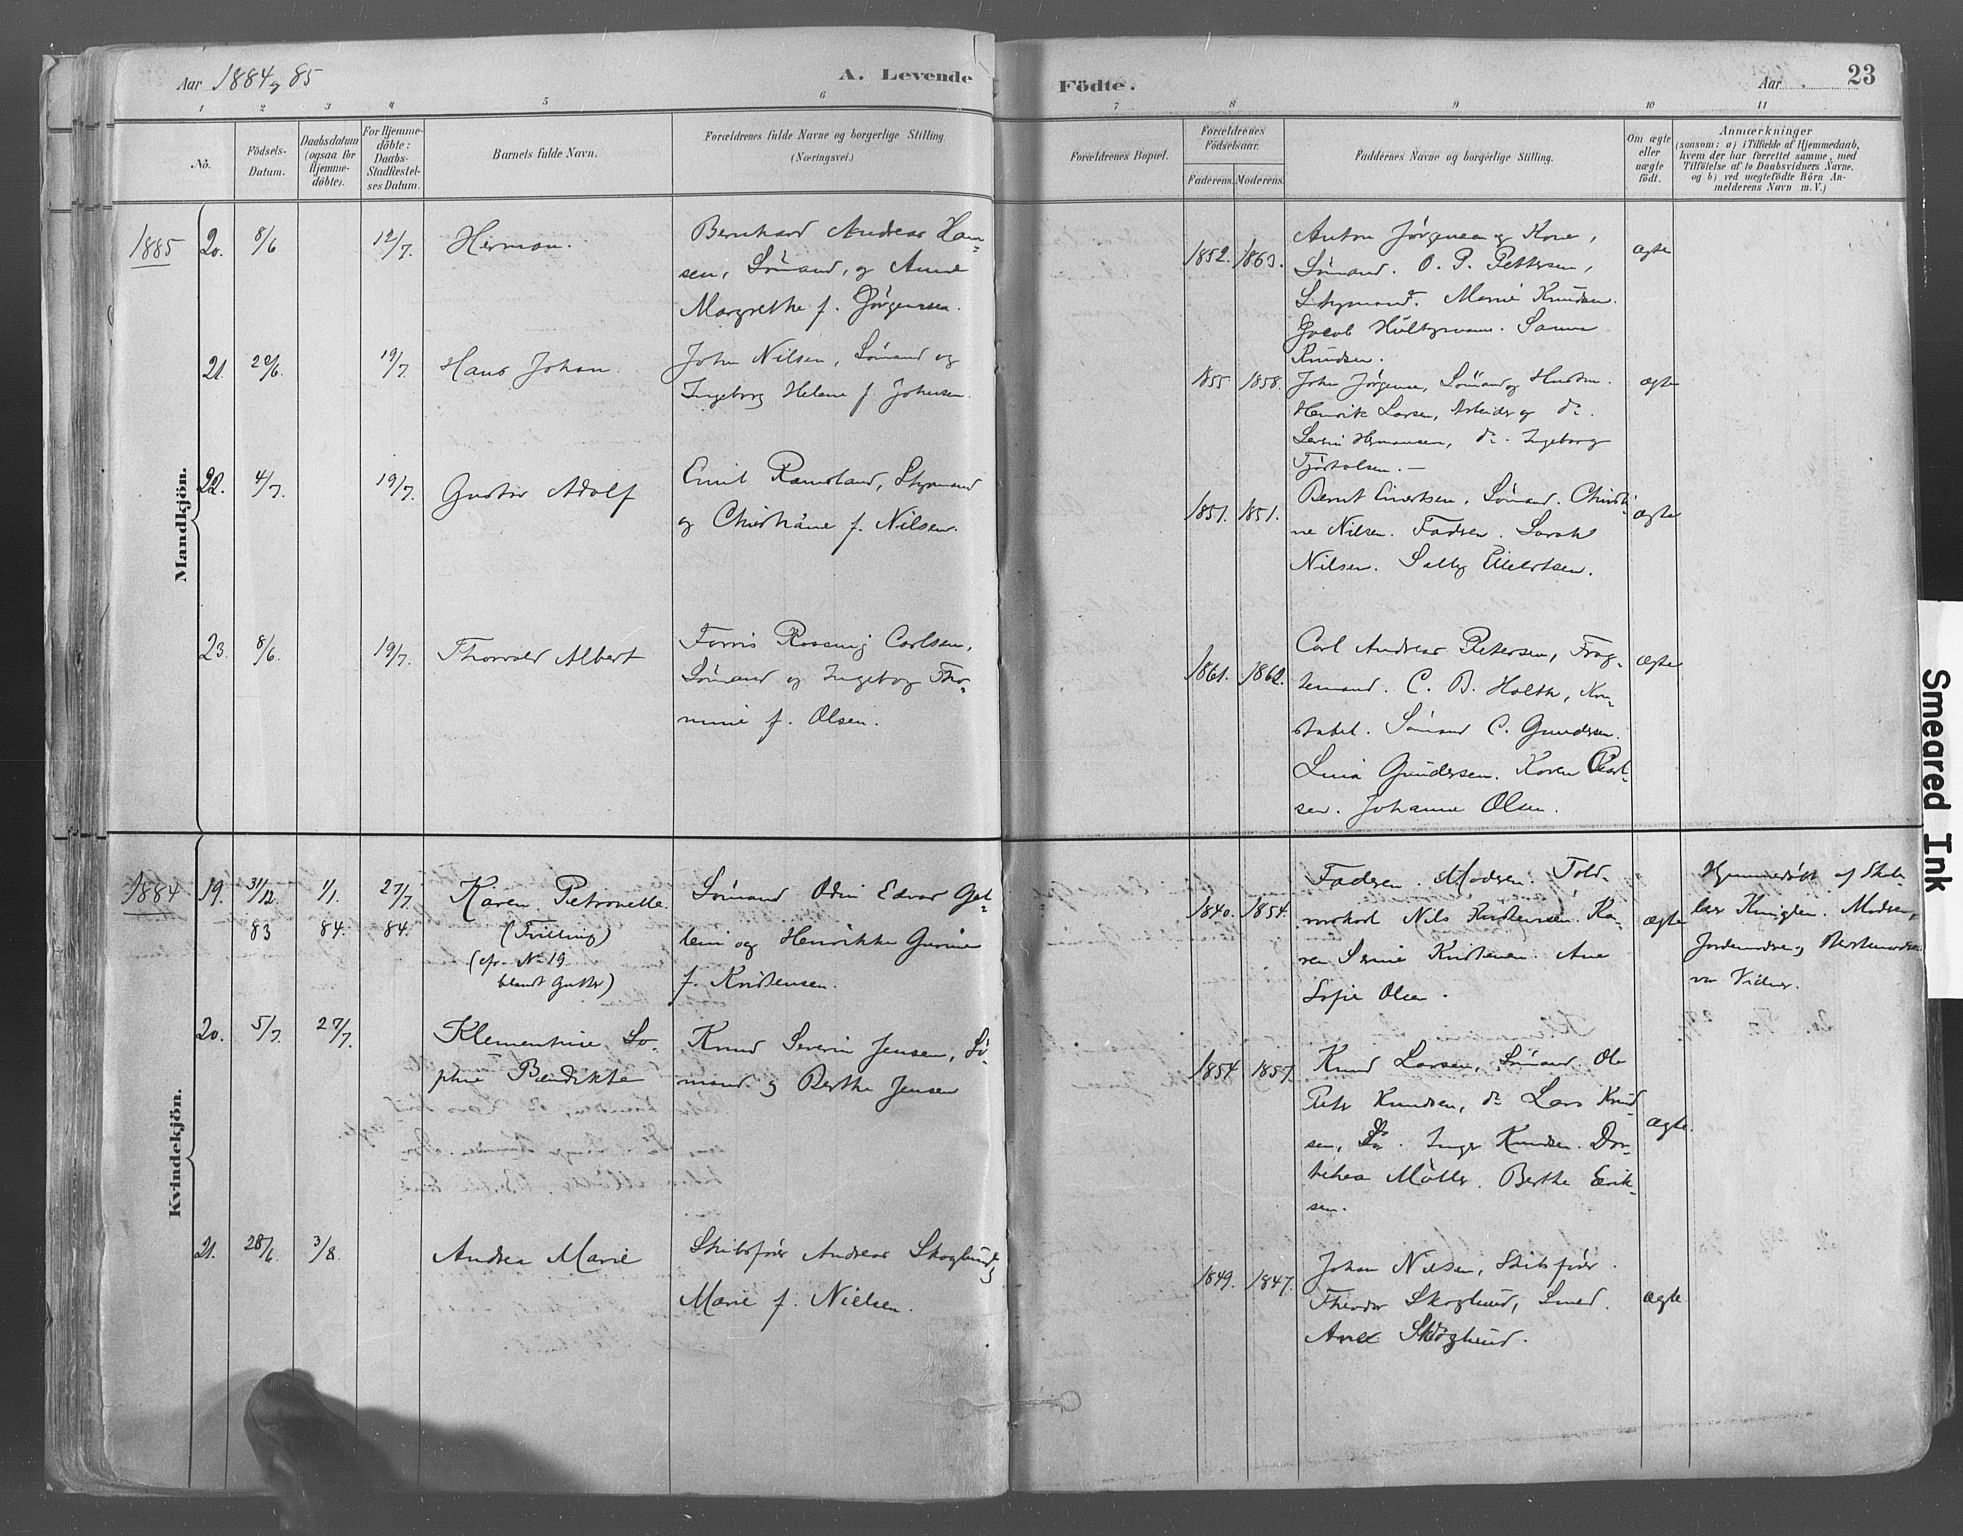 Aar 1884 og 85
A. Levende
Födte.
Aar
23
1 2 3 4 5 6 7 8 9 10 11
No.
Födsels-
Datum.
Daabsdatum
(ogsaa for
Hjemme-
döbte).
For Hjemme-
döbte:
Daabs-
Stadfæstel-
ses Datum.
Barnets fulde Navn.
Forældrenes fulde Navne og borgerlige Stilling.
(Næringsvei.)
Forældrenes Bopæl.
Forældrenes
Födselsaar.
Faderens. Moderens.
Faddernes Navne og borgerlige Stilling.
Om ægte
eller
uægte
födt.
Anmærkninger
(saasom: a) i Tilfælde af Hjemmedaab,
hvem der har forrettet samme, med
Tilföielse af to Daabsvidners Navne,
og b) ved uægtefödte Börn An-
melderens Navn m. V.)
Mandkjön.
1885
20. 8/6 12/7. Herman.
Bernhard Andreas Han-
sen, Sömand, og Anne
Margrethe f. Jörgensen.
1852. 1863.
Anton Jörgensen og Kone,
Sömand. O. P. Pettersen,
Styrmand. Marie Knudsen.
Jacob Holtzmann. Sanna
Knudsen.
ægte
21. 19/7. Hans Johan.
John Nilsen, Sömand og
Ingeborg Helene f. Johnsen.
1855 1858.
John Jörgensen, Sömand og Hustru.
Henrik Larsen, Arbeider og do.
Severin Hermansen, do. Ingeborg
ægte
22. 4/7. 19/7. Gustav Adolf
Emil Ramsland, Styrmand
og Christiane f. Nilsen.
1851. 1851.
Bernt Eilertsen, Sömand. Christi-
ne Nilsen. Fadren. Sarah
Nilsen. Sally Eilertsen.
ægte
23. 8/6. 19/7. Thorvald Albert
Carlsen,
Sömand og Ingeborg Tho-
mine f. Olsen.
1861. 1862.
Carl Andreas Petersen, Frag-
temand. C. B. Holth, Kon-
stabel. Sömand C. Gundersen.
Lina Gundersen. Karen Carl-
sen. Johanne Olsen.
ægte
Kvindekjön.
1884
19. 31/12 83 1/1. 84. 27/7 84. Karen Petronelle
(Trilling)
(cfr. No 19
blandt Gutter)
Sömand Odin Edvard
og Henrikke Gurine
f. Kristensen.
1840. 1854.
Faderen. Moderen. Told-
Nils Kristensen. Ka-
ren Serine Kristensen. Ane
Sofie Olsen.
ægte
Hjemmedöbt af
Jordemoder og
var Vidner.
20. 5/7. 27/7. Klementine So-
phie Bendikte
Knud Severin Jensen, Sö-
mand og Berthe Jensen
1854 1857.
Knud Larsen, Sömand, Ole
Peter Knudsen, do Lars Knud-
sen, do. Inger Knudsen. Dor-
thea Möller. Berthe Erik-
sen.
ægte.
21. 28/6. 3/8. Andrea Marie
Skibsförer Andreas Skoglund og
Marie f. Nielsen.
1849. 1847.
Johan Nielsen, Skibsförer.
Theodor Skoglund, Smed.
Skoglund.
ægte.
Smeared Ink